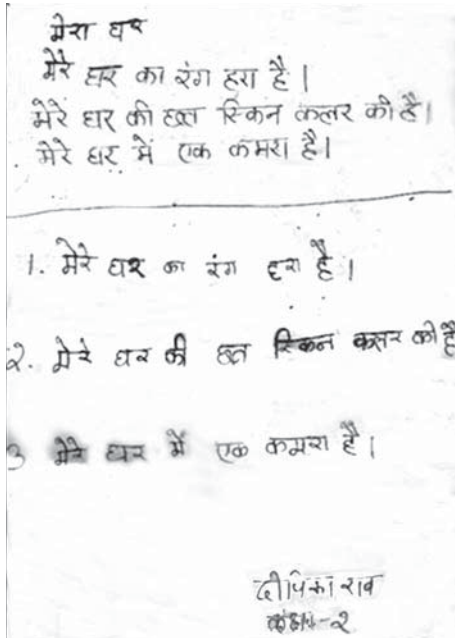 मेरा घर
मेरे घर का रंग हरा है।
मेरे घर की छत स्किन कलर की है।
मेरे घर में एक कमरा है।
1. मेरे घर का रंग हरा है।
२. मेरे घर की छत स्किन कलर की है
3 मेरे घर में एक कमरा है।
दीपिका राव
कक्षा-२